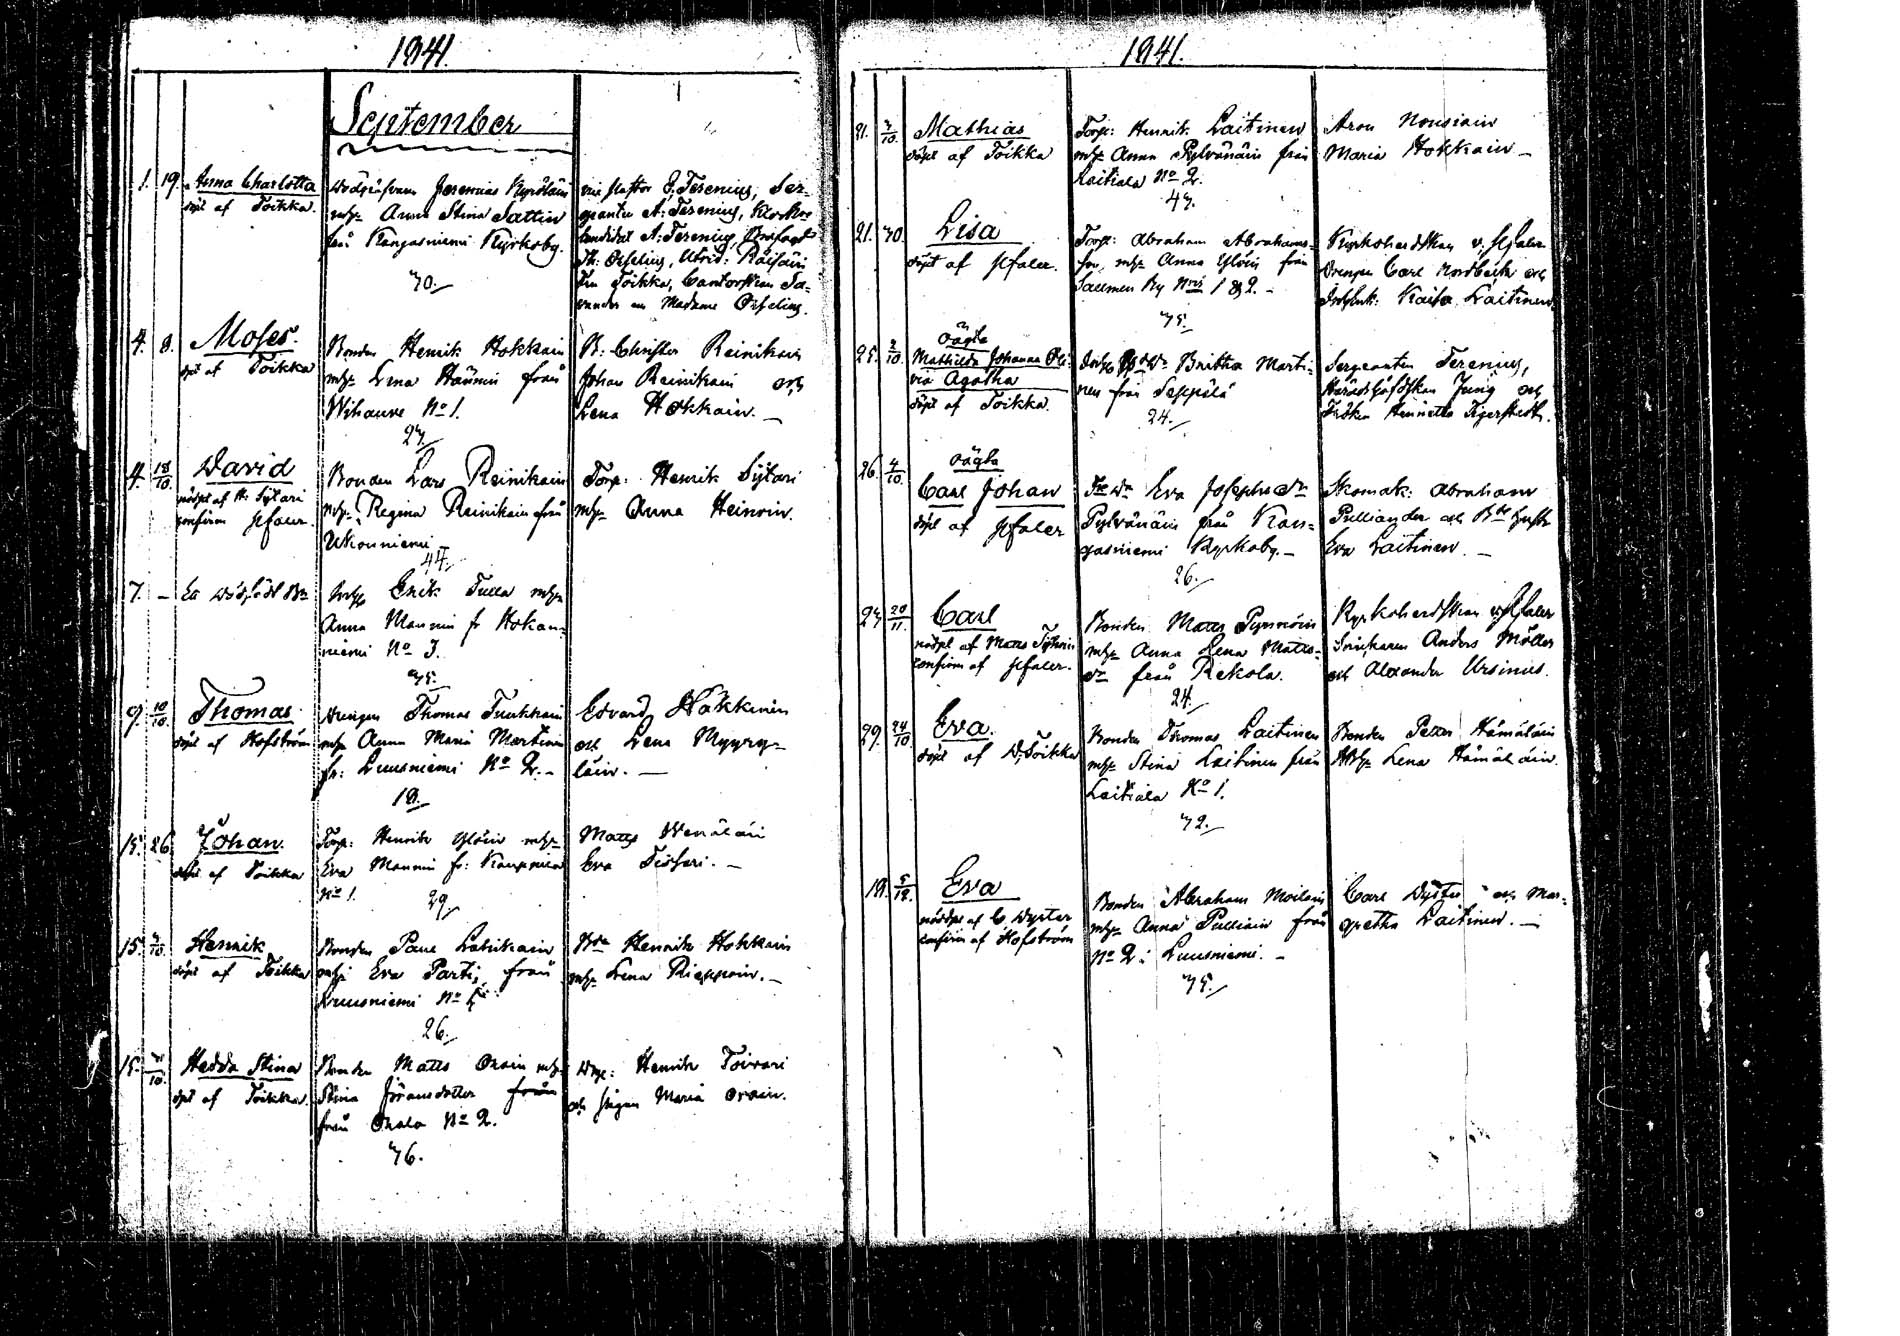 1841.
September
1. 19. Anna Charlotta
döpt af Toikka.
Jeremias Kyröläin
mh: Anna Stina Sattin
från Kangasniemi Kyrkoby.
70.
J. Terenius, Ser-
geanten A: Terenius, Klockare
kandidat A: Terenius,
Toikka, Cantorskan Sa-
vander en Madame
4. 8. Moses.
döpt af Toikka
Bonden Henrik Hokkain
mh: Lena Hännin från
Wihavue No 1.
27.
B: Christer Reinikain
Johan Reinikain och
Lena Hokkain. —
4. 18/10. David
nöddpt af H: Sÿtari
confirm Pfaler.
Bonden Lars Reinikain
mh: Regina Reinikain från
Ukonniemi
44.
Torp: Henrik Sÿtari
mh: Anna Heinoin.
7. — Ett dödfödt Bn
Inhys Erik Tulla mh:
Anna Mannin fr Hokan-
niemi No 3.
35.
9. 10/10. Thomas
döpt af Hofström
Drengen Thomas Turkkain
mh: Anna Maria Martinin
fr: Luusniemi No 2. —
18.
Edvard Häkkinin
och Lena Myyry-
läin. —
15. 26 Johan.
döpt af Toikka
Torp: Henrik Ylöin mh:
Eva Mannin fr:
No 1.
29.
Matts Wenäläi
Eva Tissari. —
15. 3/10. Henrik
döpt af Toikka
Bonden Paul Latikain
mh: Eva Parti, från
Luusniemi No 5.
26.
Bdn Henrik Hokkain
mh: Lena Rieppoin. —
15. Hedda Stina
döpt af Toikka.
Bonden Matts Orain mh:
Stina Göransdotter från
från Orala No 2.
36.
Henrik Toivari
och pigan Maria Orain.
1841.
21. 3/10. Mathias
döpt af Toikka
Torp: Henrik Laitinen
mh: Anna Pylvänäin från
Laitiala No 2.
43.
Aron Nousiain
Maria Hokkain —
21. 30. Lisa
döpt af Pfaler.
Torp: Abraham Abrahams-
son, mh: Anna Ylöin från
Salmen By Nris 1 & 2. —
35.
Kyrkoherdskan v. Pfaler
Drengen Carl Nordbäck och
Inhys: Kaisa Laitinen
25. 2/10. oägta
Mathilda Johanna Oli-
via Agatha
döpt af Toikka.
Britta Marti-
nen från Seppälä
24.
Sergeanten Terenius,
Häradshöfdskan Jung och
Fröken Henrietta Tigerstedt.
26. 4/10. oägta
Carl Johan
döpt af Pfaler
Eva Josephsdr
Pylvänäin från Kan-
gasniemi Kyrkoby. —
26.
Skomak: Abraham
Pulliander och Bde hustr
Eva Laitinen. —
27. 20/11. Carl
nöddpt af Matts
confirm af Pfaler.
Bonden Matts Pynnöin
mh: Anna Lena Matts-
dr från Rekola.
24.
Kyrkoherdskan v. Pfaler
Anders Möller
och Alexander Ursinus.
29. 24/10. Eva.
döpt af D. Toikka
Bonden Thomas Laitinen
mh: Stina Laitinen från
Laitiala No 1.
32.
Bonden Petter Hämäläin
mh: Lena Hämäläin.
19. 5/12. Eva
nöddpt af C Dyster
confirm af Hofström
Bonden Abraham Moilain
mh: Anna Pulliain från
No 2: Luusniemi. —
35.
Carl Dyster och Mar-
gretha Laitinen. —